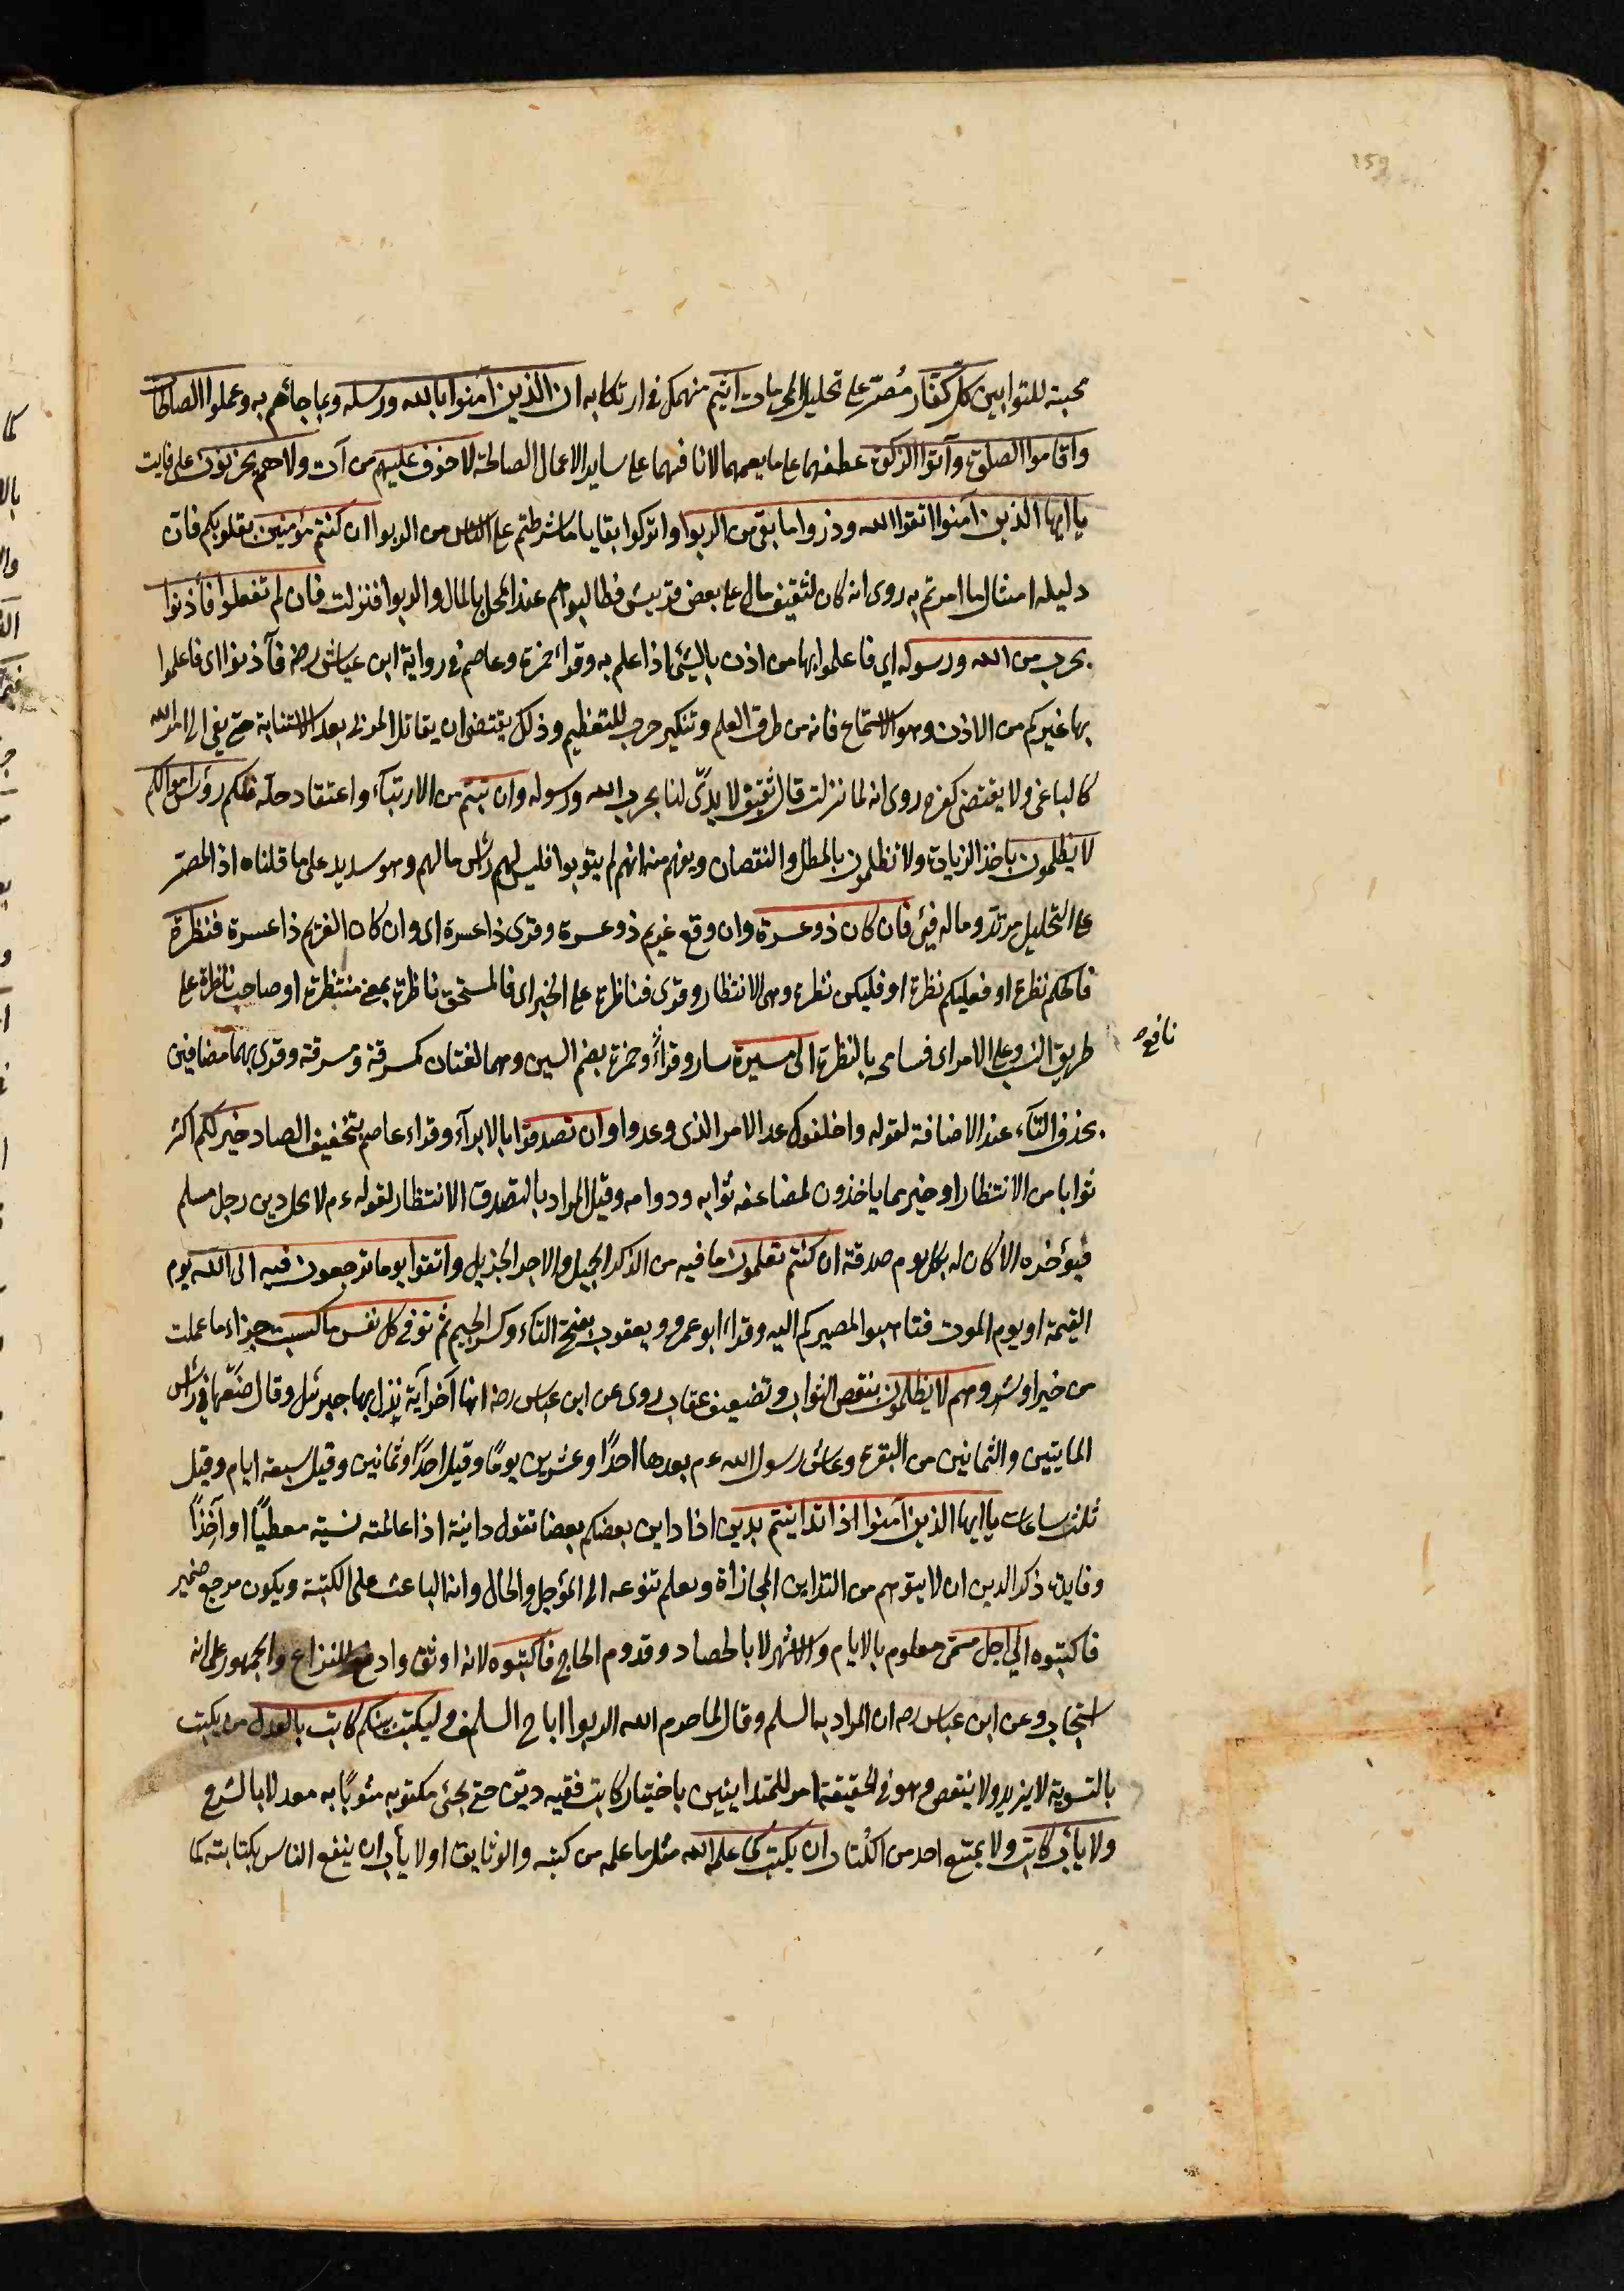 159
محبته للتوابين كلّ كفّار مُصرّ على تحليل المحرمات اثيم منهمك في ارتكابه ان الذين آمنوا بالله ورسله وبما جاءهم به وعملوا الصالحات
واقاموا الصلوة وآتوا الزكوة عطفهما على ما يعمهما لانافتهما على ساير الاعمال الصالحة لا خوف عليهم من آت ولا هم يحزنون على فايت
يا ايها الذين آمنوا اتقوا الله وذروا ما بقى من الربوا واتركوا بقايا ما شرطتم على الناس من الربوا ان كنتم مؤمنين بقلوبكم فان
دليله امتثال ما امرتم به روى انه كان لثقيف مال على بعض قريش فطالبوهم عند المحل بالمال والربوا فنزلت فان لم تفعلوا فأذنوا
بحرب من الله ورسوله اي فاعلموا بها من اذن بالشئ اذا علم به وقراء حمزة وعاصم في رواية ابن عياش رضه فآذنوا اى فاعلموا
بها غيركم من الاذن وهو الاستماع فانه من طرق العلم وتنكير حرب للتعظيم وذلك يقتضى ان يقاتل المربى بعد الاستتابة حتى يفئ الى امر الله
كالباغى ولا يقتضى كفره روى انه لما نزلت قال ثقيف لا يدَىْ لنا بحرب الله ورسوله وان تبتم من الارتباء واعتقاد حله فلكم رؤس اموالكم
لا تظلمون باخذ الزيادة ولا تظلمون بالمطل والنقصان ويفهم منه انهم لم يتوبوا فليس لهم رأس مالهم وهو سديد على ما قلناه اذ المصرّ
على التحليل مرتدّ وماله فئ فان كان ذو عسرة وان وقع غريم ذو عسرة وقرى ذا عسرة اى وان كان الغريم ذا عسرة فنظرة
فالحكم نظرة او فعليكم نظرة او فليكن نظرة وهى الانتظار وقرى فناظرة على الخبر اى فالمستحق ناظرة بمعنى منتظرة او صاحب نظرة على
طريق النسب وعلى الامر اى فسامحه بالنظرة الى ميسرة يسار وقراءً وحمزة بضم السين وهما لغتان كمشرقة ومشرقة وقرى بهما مضافين
نافع صح
بحذف التآء عند الاضافة لقوله واخلفوك عد الامر الذى وعدوا وان تصدقوا بالابرآء وقراء عاصم بتخفيف الصاد خير لكم اكثر
ثوابا من الانتظار او خير مما ياخذون لمضاعفه ثوابه ودوامه وقيل المراد بالتصدق الانتظار لقوله ءم لا يحل دين رجل مسلم
فيؤخره الا كان له بكل يوم صدقة ان كنتم تعلمون ما فيه من الذكر الجميل والاجر الجزيل واتقوا يوما ترجعون فيه الى الله يوم
القيمة او يوم الموت فتاهبوا لمصيركم اليه وقراء ابو عمرو ويعقوب بفتح التاء وكسر الجيم ثم توفى كل نفس ما كسبت جزاء ما عملت
من خير او شر وهم لا يظلمون بنقص الثواب وتضعيف عقاب روى عن ابن عباس رضه انها آخر آية نزل بها جبرئل وقال ضعها في رأس
المايتين والثمانين من البقرة وعاش رسول الله ءم بعدها احدًا وعشرين يومًا وقيل احدًا وثمانين وقيل سبعة ايام وقيل
ثلث ساعات يا ايها الذين آمنوا اذا تداينتم بدين اذا داين بعضكم بعضا تقول داينة اذا عاملته نسيّة معطيًا او آخذًا
وفايدة ذكر الدين ان لا يتوهم من التداين المجازاة ويعلم تنوعه الى المؤجل والحال وانه الباعث على الكتبة ويكون مرجع ضمير
فاكتبوه الى اجل مسمّى معلوم بالايام والاشهر لا بالحصاد وقدوم الحاج فاكتبوه لانه اوثق وادفع للنزاع والجمهور على انه
استحباب وعن ابن عباس رضه ان المراد به السلم وقال لما حرم الله الربوا اباح السلم وليكتب بينكم كاتب بالعدل من يكتب
بالتسوية لا يزيد ولا ينقص وهو في الحقيقة امر للمتداينين باختيار كاتب فقيه ديّن حتى يجئ مكتوبه مثوبًا به معدلا بالشرع
ولا يأب كاتب ولا يمتنع احد من الكُتاب ان يكتب كما علمه الله مثل ما علمه من كتبه والوثايق او لا يأب ان ينفع الناس بكتابته كما